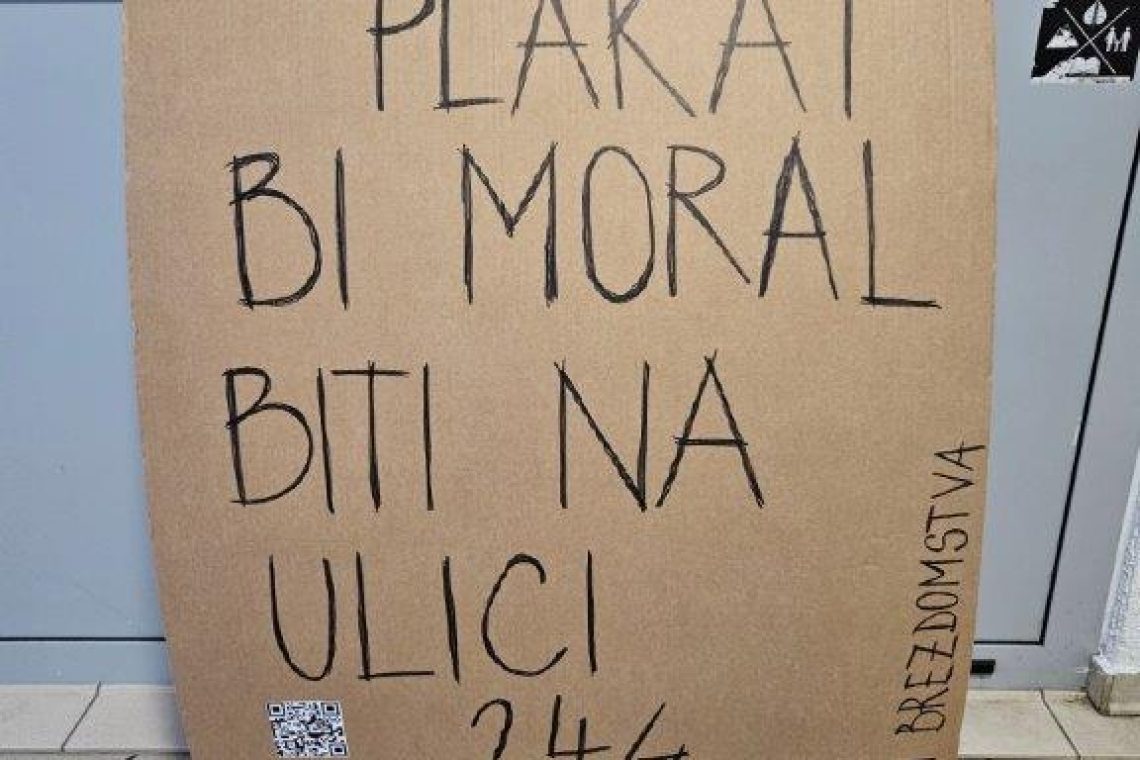 PLAKAT
BI MORAL
BITI NA
ULICI
BREZDOMSTVA